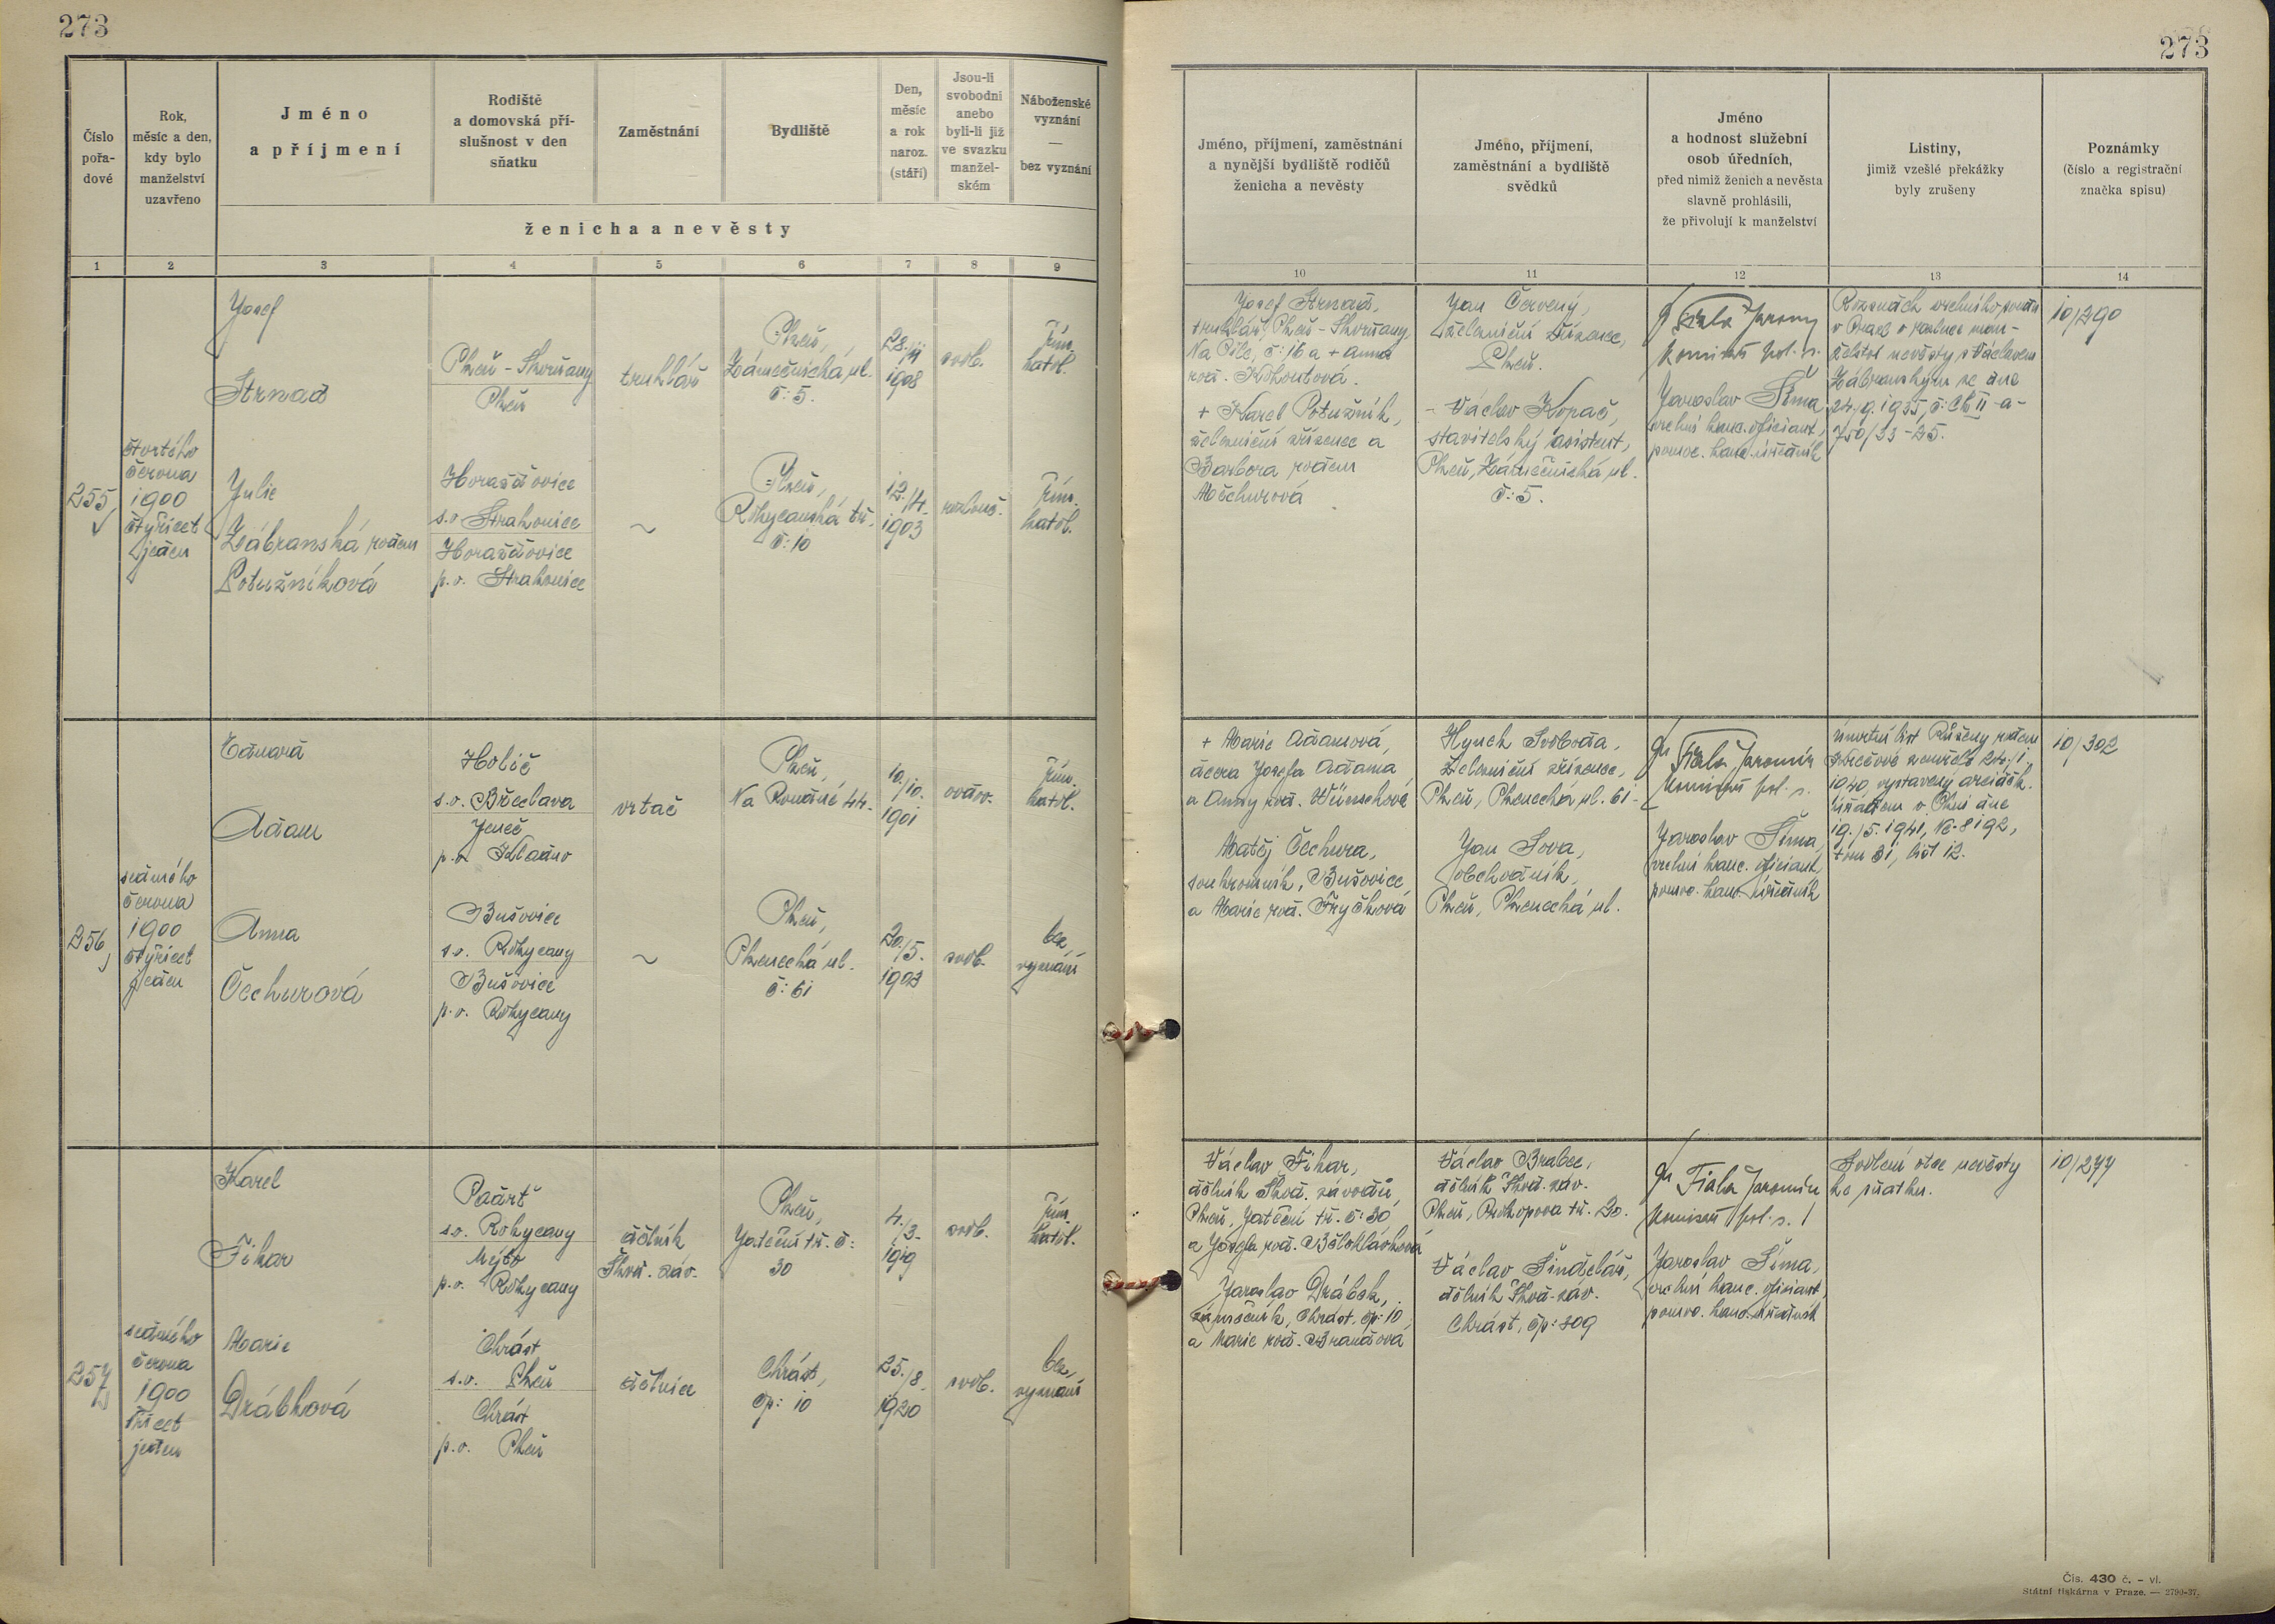 273
273
Číslo
pořa-
dové
Rok,
měsíc a den,
kdy bylo
manželství
uzavřeno
Jméno
a příjmení
Rodiště
a domovská pří-
slušnost v den
sňatku
Zaměstnání
Bydliště
Den,
měsíc
a rok
naroz.
(stáří)
Jsou-li
svobodni
anebo
byli-li již
ve svazku
manžel-
ském
Náboženské
vyznání
—
bez vyznání
ženicha a nevěsty
1 2 3 4 5 6 7 8 9
Jméno, příjmení, zaměstnání
a nynější bydliště rodičů
ženicha a nevěsty
Jméno, příjmení,
zaměstnání a bydliště
svědků
Jméno
a hodnost služební
osob úředních,
před nimiž ženich a nevěsta
slavně prohlásili,
že přivolují k manželství
Listiny,
jimiž vzešlé překážky
byly zrušeny
Poznámky
(číslo a registrační
značka spisu)
10 11 12 13 14
255
čtvrtého
června
1900
čtyřicet
jeden
Josef
Strnad
Plzeň - Skvrňany
Plzeň
truhlář
Plzeň,
Zámečnická ul.
č: 5.
1908
svob.
řím.
katol.
Julie
Zábranská rodem
Potužníková
Horažďovice
s.o Strakonice
Horažďovice
p.o. Strakonice
~
Plzeň,
Rokycanská tř.
č: 10
12./4.
1903
rozlouč.
řím.
katol.
Josef Strnad,
truhlář, Plzeň - Skvrňany,
Na Pile, č: 16 a + Anna
roz. Kohoutová.
+ Karel Potužník,
železniční zřízenec a
Barbora rodem
Měchurová
Jan Červený,
železniční zřízenec,
Plzeň.
- Václav Kopač,
stavitelský asistent,
Plzeň, Zámečnická ul.
č: 5.
Fiala Jaromír
komisař pol. s.
Jaroslav Šíma
vrchní kanc. oficiant,
pomoc. kanc. úředník
Rozsudek vrchního soudu
v Praze o rozluce man-
želství nevěsty s Václavem
Zábranským ze dne
24./9. 1935, č: Ck II -a-
750/33 - 25.
10/290
256
sedmého
června
1900
čtyřicet
jeden
Eduard
Adam
Holič
s.o. Břeclava
Jeneč
p.o. Kladno
vrtač
Plzeň,
Na Roudné 44.
10./10.
1901
ovdov.
řím.
katol.
Anna
Čechurová
Bušovice
s.o. Rokycany
Bušovice
p.o. Rokycany
~
Plzeň,
Plzenecká ul.
č: 61
20./5.
1903
svob.
bez
vyznání
+ Marie Adamová,
dcera Josefa Adama
a Anny roz. Wünschové
Matěj Čechura,
soukromník, Bušovice
a Marie roz. Fryčková
Hynek Svoboda,
železniční zřízenec,
Plzeň, Plzenecká ul. 61.
Jan Sova,
obchodník,
Plzeň, Plzenecká ul.
Fiala Jaromír
komisař pol. s.
Jaroslav Šíma,
vrchní kanc. oficiant,
pomoc. kanc. úředník
úmrtní list Růženy rodem
zemřelé 24./1.
1940, vystavený arciděk.
úřadem v Plzni dne
19./5. 1941, Nč. 8192,
tom 31, list 12.
10/302
257
sedmého
června
1900
čtyřicet
jeden
Karel
Fihar
s.o. Rokycany
Mýto
p.o. Rokycany
dělník
Škod. záv.
Plzeň,
Jateční tř. č:
30
4./3.
1919
svob.
řím.
katol.
Marie
Drábková
Chrást
s.o. Plzeň
Chrást
p.o. Plzeň
dělnice
Chrást,
čp: 10
25./8.
1920
svob.
bez
vyznání
Václav Fihar,
dělník Škod. závodů,
Plzeň, Jateční tř. č: 30
a Josefa roz. Bělohlávková
Jaroslav Drábek,
zámečník, Chrást, čp: 10,
a Marie roz. Brandová
Václav Brabec,
dělník Škod. záv.
Plzeň, Prokopova tř. 20.
Václav Šindelář,
dělník Škod. záv.
Chrást, čp: 209
Fiala Jaromír
komisař pol. s.
Jaroslav Šíma,
vrchní kanc. oficiant,
pomoc. kanc. úředník
Svolení otce nevěsty
ke sňatku.
10/277
Čís. 430 č. - vl.
Státní tiskárna v Praze. — 2790-37.